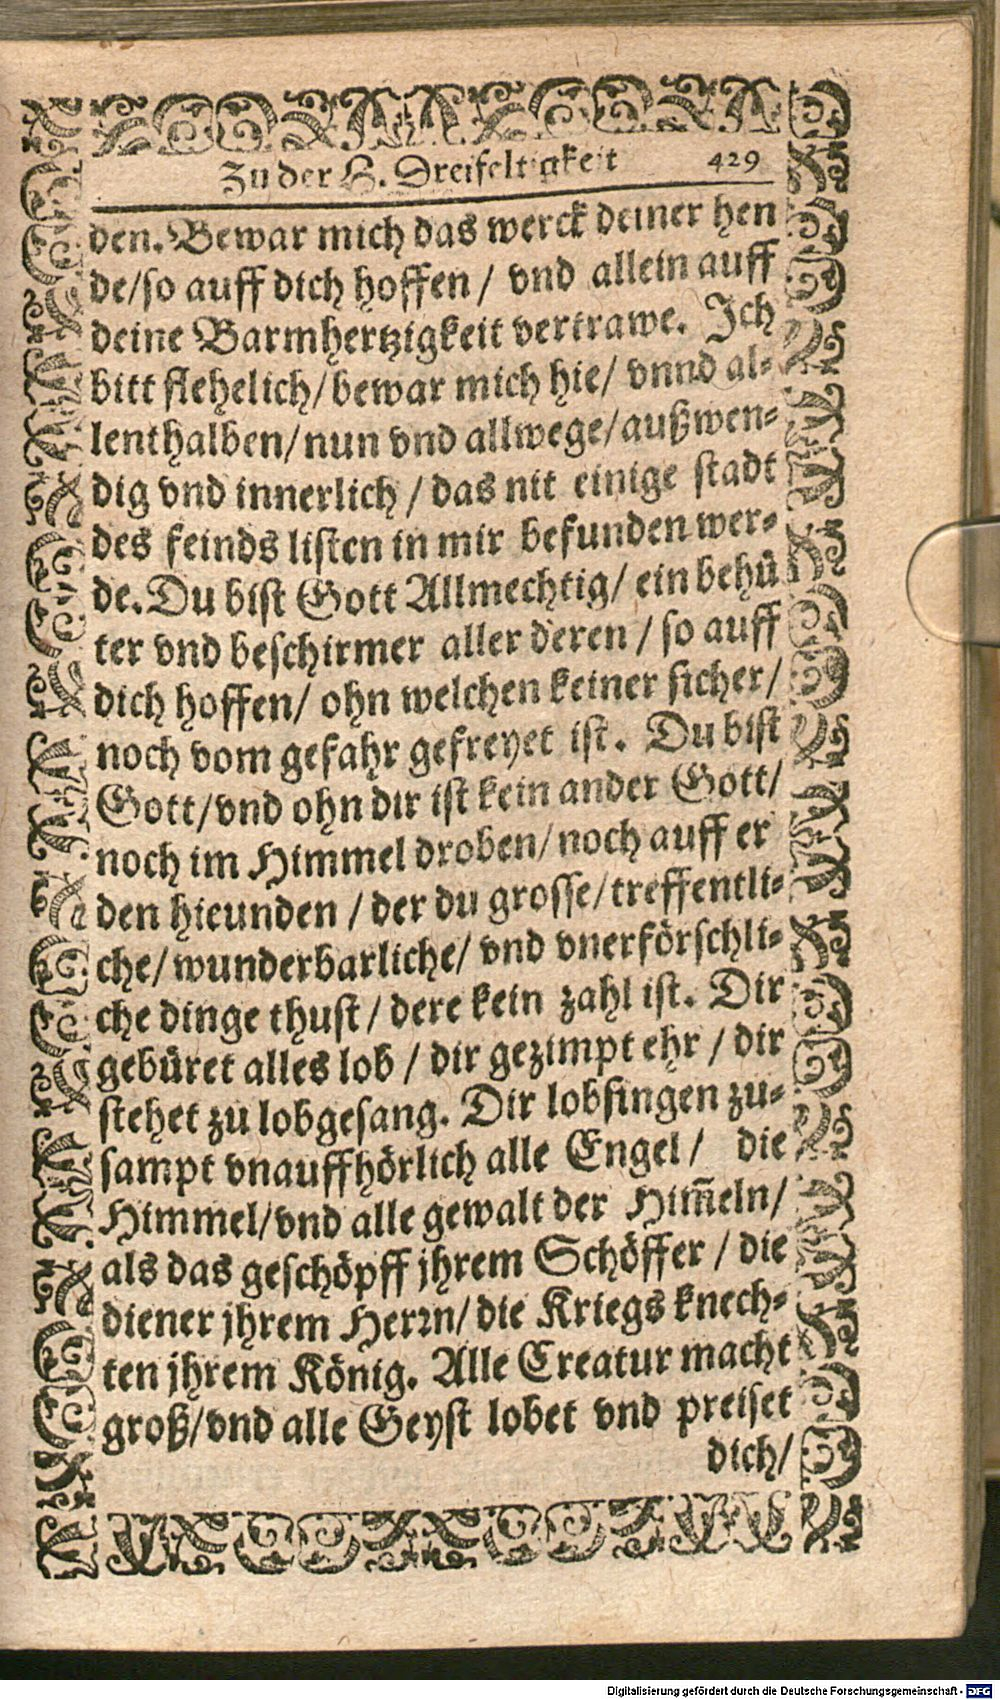 Zu der H. Dreifeltigkeit 429
den. Bewar mich das werck deiner hen
de/so auff dich hoffen / vnd allein auff
deine Barmhertzigkeit vertrawe. Ich
bitt flehelich/ bewar mich hie/ vnnd al-
lenthalben/ nun vnd allwege/ außwen-
dig vnd innerlich / das nit einige stadt
des feinds listen in mir befunden wer-
de. Du bist Gott Allmechtig/ ein behü
ter vnd beschirmer aller deren / so auff
dich hoffen/ ohn welchen keiner sicher/
noch vom gefahr gefreyet ist. Du bist
Gott/vnd ohn dir ist kein ander Gott/
noch im Himmel droben/ noch auff er
den hieunden / der du grosse/ treffentli-
che/ wunderbarliche/ vnd vnerförschli-
che dinge thust / dere kein zahl ist. Dir
gebüret alles lob / dir gezimpt ehr / dir
stehet zu lobgesang. Dir lobsingen zu-
sampt vnauffhörlich alle Engel / die
Himmel/vnd alle gewalt der Him̃eln/
als das geschöpff jhrem Schöffer / die
diener jhrem Herꝛn/ die Kriegs knech-
ten jhrem König. Alle Creatur macht
groß/vnd alle Geyst lobet vnd preiset
dich/
Digitalisierung gefördert durch die Deutsche Forschungsgemeinschaft - DFG